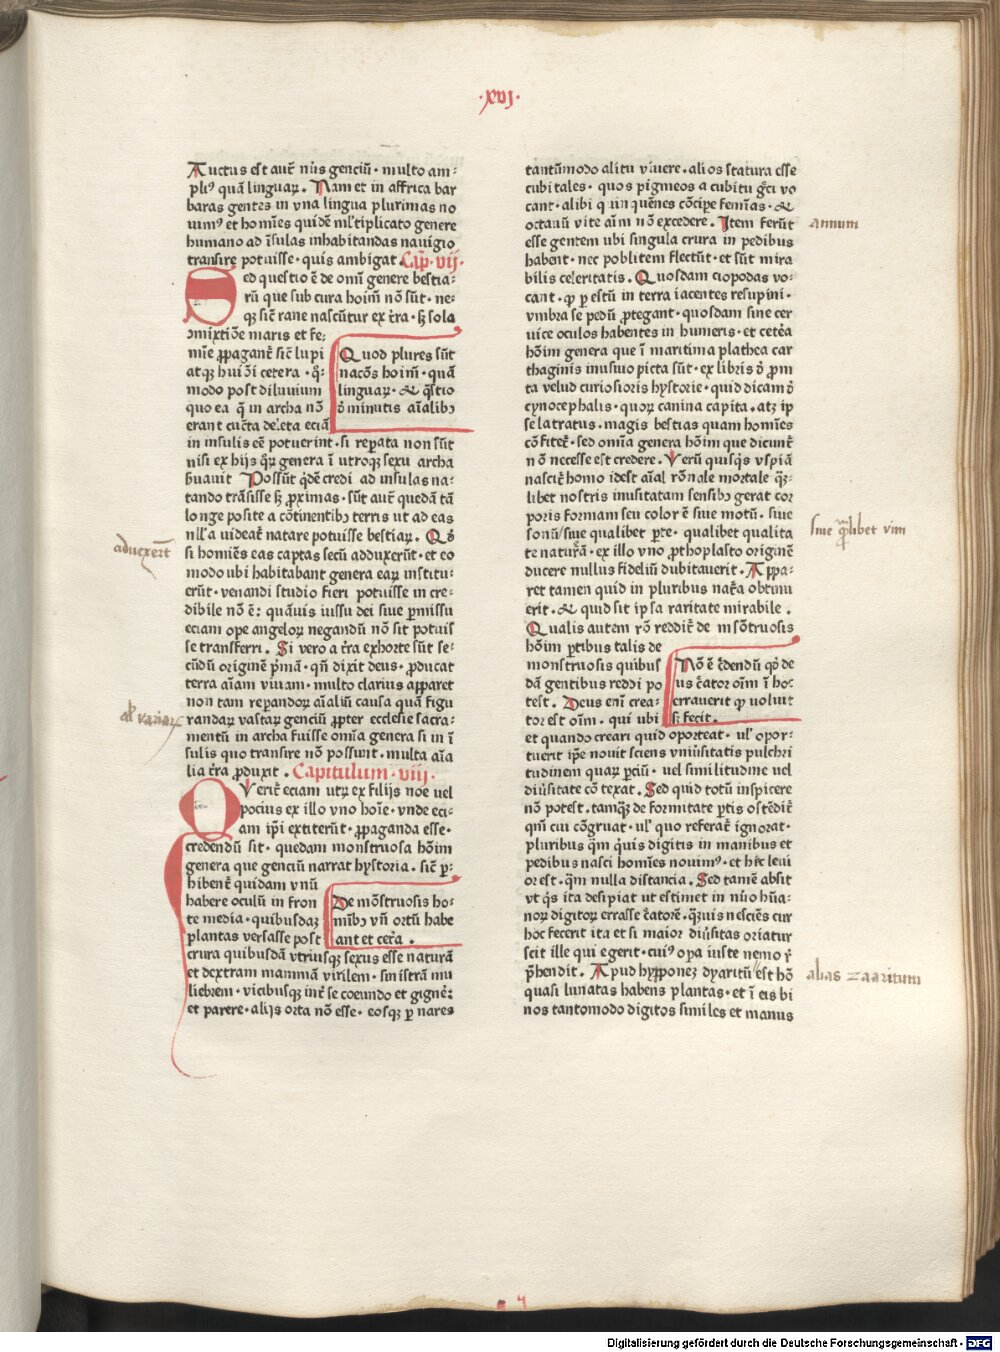 ·xvj·
Auctus est aut̃ nũs genciũ · multo am⸗
pliꝰ quã linguaꝝ . Nam et in affrica bar
baras gentes in vna lingua plurimas no
uimꝰ et homĩes quidẽ ml̃tiplicato genere
humano ad ĩsulas inhabitandas nauigio
transire potuisse · quis ambigat . Cap̃ · vij ·
Sed questio ẽ de omñ genere bestia⸗
rũ que sub cura hoim̃ nõ sũt · ne⸗
qꝫ sic̃ rane nascũtur ex t̃ra · sꝫ sola
ↄmixtiõe maris et fe⸗
mĩe ꝓpagant̃ sic̃ lupi
atqꝫ huiꝰõi cetera · q̃⸗
modo post diluuium
quo ea q̃ in archa nõ
erant cũcta deleta eciã
Quod plures sũt
nacõs hoim̃ · quã
linguaꝝ · & q̃stio
õ minutis aĩalibꝫ
in insulis eẽ potuerint · si rep̱ata non sũt
nisi ex hijs q̃ꝝ genera ĩ utroqꝫ sexu archa
ẜuauit Possũt q̃dẽ credi ad insulas na⸗
tando trãsisse sꝫ ꝓximas · sũt aut̃ quedã tã
longe posite a cõtinentibꝫ terris ut ad eas
nll̃a uideat̃ natare potuisse bestiaꝝ . Qð
si homiẽs eas captas secũ adduxerũt · et eo
modo ubi habitabant genera eaꝝ institu⸗
erũt · venandi studio fieri potuisse in cre⸗
dibile nõ ẽ : quãuis iussu dei siue ꝑmissu
eciam ope angeloꝝ negandũ nõ sit potuis
se transferri . Si vero a t̃ra exhorte sũt se⸗
cũdũ originẽ pᷓmã · qñ dixit deus · ꝓducat
terra aĩam viuam · multo clarius apparet
non tam rep̱andoꝝ aĩaliũ causa quã figu
randaꝝ vastaꝝ genciũ ꝓpter ecclesie sacra⸗
mentũ in archa fuisse omĩa genera si in ĩ
sulis quo transire nõ possunt · multa aĩa
lia t̃ra ꝓduxit . Capitulum · viij ·
Querit̃ eciam utꝝ ex filijs noe uel
pocius ex illo vno hoĩe · vnde eci⸗
am ip̃i extiterũt · ꝓpaganda esse ·
credendũ sit · quedam monstruosa hõim
genera que genciũ narrat hystoria . sic̃ p̱⸗
hibent̃ quidam vnũ
habere oculũ in fron
te media · quibusdaꝫ
plantas versasse post
De mõstruosis ho⸗
mĩbꝫ vñ ortũ habe
ant et cet̃a .
crura quibusdã vtriusqꝫ sexus esse naturã
et dextram mammã virilem · sinistrã mu
liebrem · vicibusqꝫ int̃ se coeundo et gigñe⸗
et parere · alijs orta nõ esse · eosqꝫ p̱ nares
aducxerũt
al̃ variaꝝ
tantũmodo alitu viuere . alios statura esse
cubitales · quos pigmeos a cubitu g̃ci vo
cant · alibi qᷓinquẽnes cõcipe femĩas · &
octauũ vite aĩm nõ excedere . Item ferũt
esse gentem ubi singula crura in pedibus
habent · nec poblitem flectũt · et sũt mira
bilis celeritatis . Quosdam ciopodas vo⸗
cant · ꝙ p̱ estũ in terra iacentes resupini ·
vmbra se pedũ ꝓtegant · quosdam sine cer
uice oculos habentes in humeris · et cetẽa
hõim genera que ĩ maritima plathea car
thaginis inusiuo picta sũt · ex libris õ ꝓm
ta velud curiosioris hystorie · quid dicam õ
cynocephalis · quoꝝ canina capita · atꝫ ip
se latratus · magis bestias quam homĩes
cõfitet̃ · sed omĩa genera hõim que dicunt̃
nõ necesse est credere . Verũ quisq̃s vspiã
nascit̃ homo idest aĩal rõnale mortale q̃ꝫ⸗
libet nostris inusitatam sensibꝫ gerat cor
poris formam seu color ẽ siue motũ . siue
sonũ/siue qualibet p̱te · qualibet qualita
te natur̃a . ex illo vno ꝓthoplasto originẽ
ducere nullus fideliũ dubitauerit . Appa⸗
ret tamen quid in pluribus nat̃a obtinu
erit · & quid sit ipsa raritate mirabile .
Qualis autem rõ reddit̃ de mõstruosis
hõim p̱tibus talis de
monstruosis quibus
dã gentibus reddi po
test . Deus eñi crea⸗
tor est oĩm . qui ubi
Nõ ẽ c̃dendũ qð de
us c̃ator oĩm ĩ hoc
errauerit ꝙ voluit
sĩ fecit .
et quando creari quid oporteat · ul̃ opor⸗
tuerit ip̃e nouit sciens vniũsitatis pulchri
tudinem quaꝝ p̱ciũ · uel similitudine uel
diũsitate cõtexat . Sed quid totũ inspicere
nõ potest . tamq̃ꝫ deformitate p̱tis ostẽdit̃
qm̃ cui cõgruat · ul̃ quo referat̃ ignorat ·
pluribus qᷓm q̃uis digitis in manibus et
pedibus nasci homĩes nouimꝰ · et hẽc leui
or est . q̃m nulla distancia . Sed tamẽ absit
vt q̃s ita desipiat ut estimet in nũo hũa⸗
noꝝ digitoꝝ errasse c̃atorẽ . q̃ꝫuis nesciẽs cur
hoc fecerit ita et si maior diũsitas oriatur
scit ille qui egerit · cuiꝰ opa iuste nemo r̃
p̃hendit . Apud hypponeꝫ dyaritũ est hõ
quasi lunatas habens plantas · et ĩ eis bi
nos tantomodo digitos similes et manus
annum
siue qᷓlibet vim
alias zaaritum
Digitalisierung gefördert durch die Deutsche Forschungsgemeinschaft · DFG